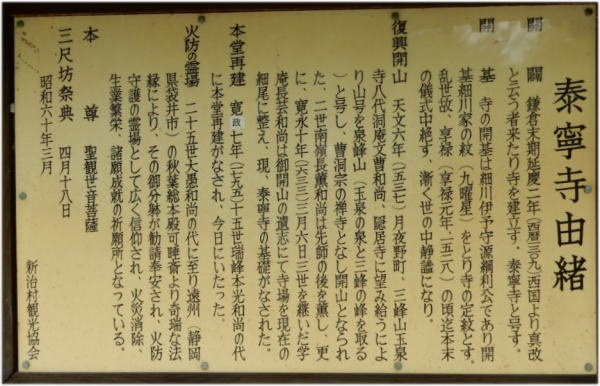 泰寧寺由緒
開闢 鎌倉末期延慶二年(西暦一三〇九)西国より真改
と云う者来たり寺を建立す、泰寧寺と号す。
開基 寺の開基は細川伊予守源綱利公であり開
基細川家の紋(九曜星)をとり寺の定紋とす。
乱世故、享禄(享禄元年、一五二八)の頃迄本末
の儀式中絶す、漸く世の中静謐になり。
復興開山 天文六年(一五三七)月夜野町、三峰山玉泉
寺八代洞庵文曹和尚、隠居寺に望み給うによ
り山号を泉峰山(玉泉の泉と三峰の峰を取る
)と号し、曹洞宗の禅寺となし開山となられ
た、二世南嶺長薫和尚は先師の後を薫し、更
に、寛永十年(一六三三)三月六日三世を継いだ学
庵長芸和尚は御開山の遺志にて寺場を現在の
細尾に整え、現、泰寧寺の基礎がなされた。
本堂再建 寛政七年(一七九五)十五世瑞峰本光和尚の代
に本堂再建がなされ、今日にいたった。
火防の霊場 二十五世大愚和尚の代に至り遠州(静岡
県袋井市)の秋葉総本殿可睡斎より奇瑞な法
縁により、その御分躰が勧請奉安され、火防
守護の霊場として広く信仰され、火災消除、
生業繁栄、諸願成就の祈願所となっている。
本尊 聖観世音菩薩
三尺坊祭典 四月十八日
昭和六十年三月
新治村観光協会